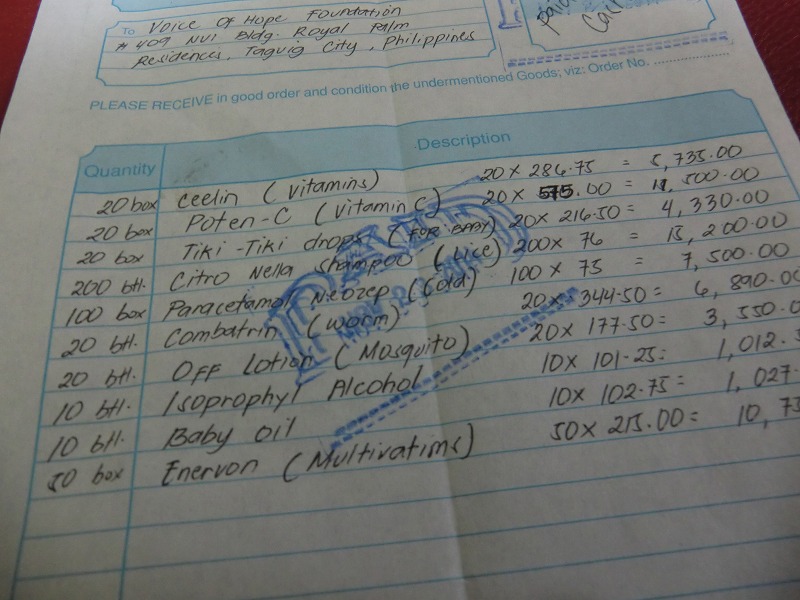 To Voice Of Hope Foundation
# 409 NV1 Bldg. Royal Palm
Residences, Taguig City, Philippines
paid
PLEASE RECEIVE in good order and condition the undermentioned Goods; viz: Order No.
Quantity Description
20 box Ceelin (Vitamins) 20 x 286.75 = 5,735.00
20 box Poten-C (Vitamin C) 20 x 575.00 = 11,500.00
20 box Tiki-Tiki drops (FOR BABY) 20 x 216.50 = 4,330.00
200 btl. Citro Nella Shampoo (Lice) 200 x 76 = 15,200.00
100 box Paracetamol, Neozep (Cold) 100 x 75 = 7,500.00
20 btl. Combatrin (worm) 20 x 344.50 = 6,890.00
20 btl. OFF Lotion (Mosquito) 20 x 177.50 = 3,550.0
10 btl. Isoprophyl Alcohol 10 x 101.25 = 1,012.5
10 btl. Baby Oil 10 x 102.75 = 1,027.
50 box Enervon (Multivatims) 50 x 215.00 = 10,75